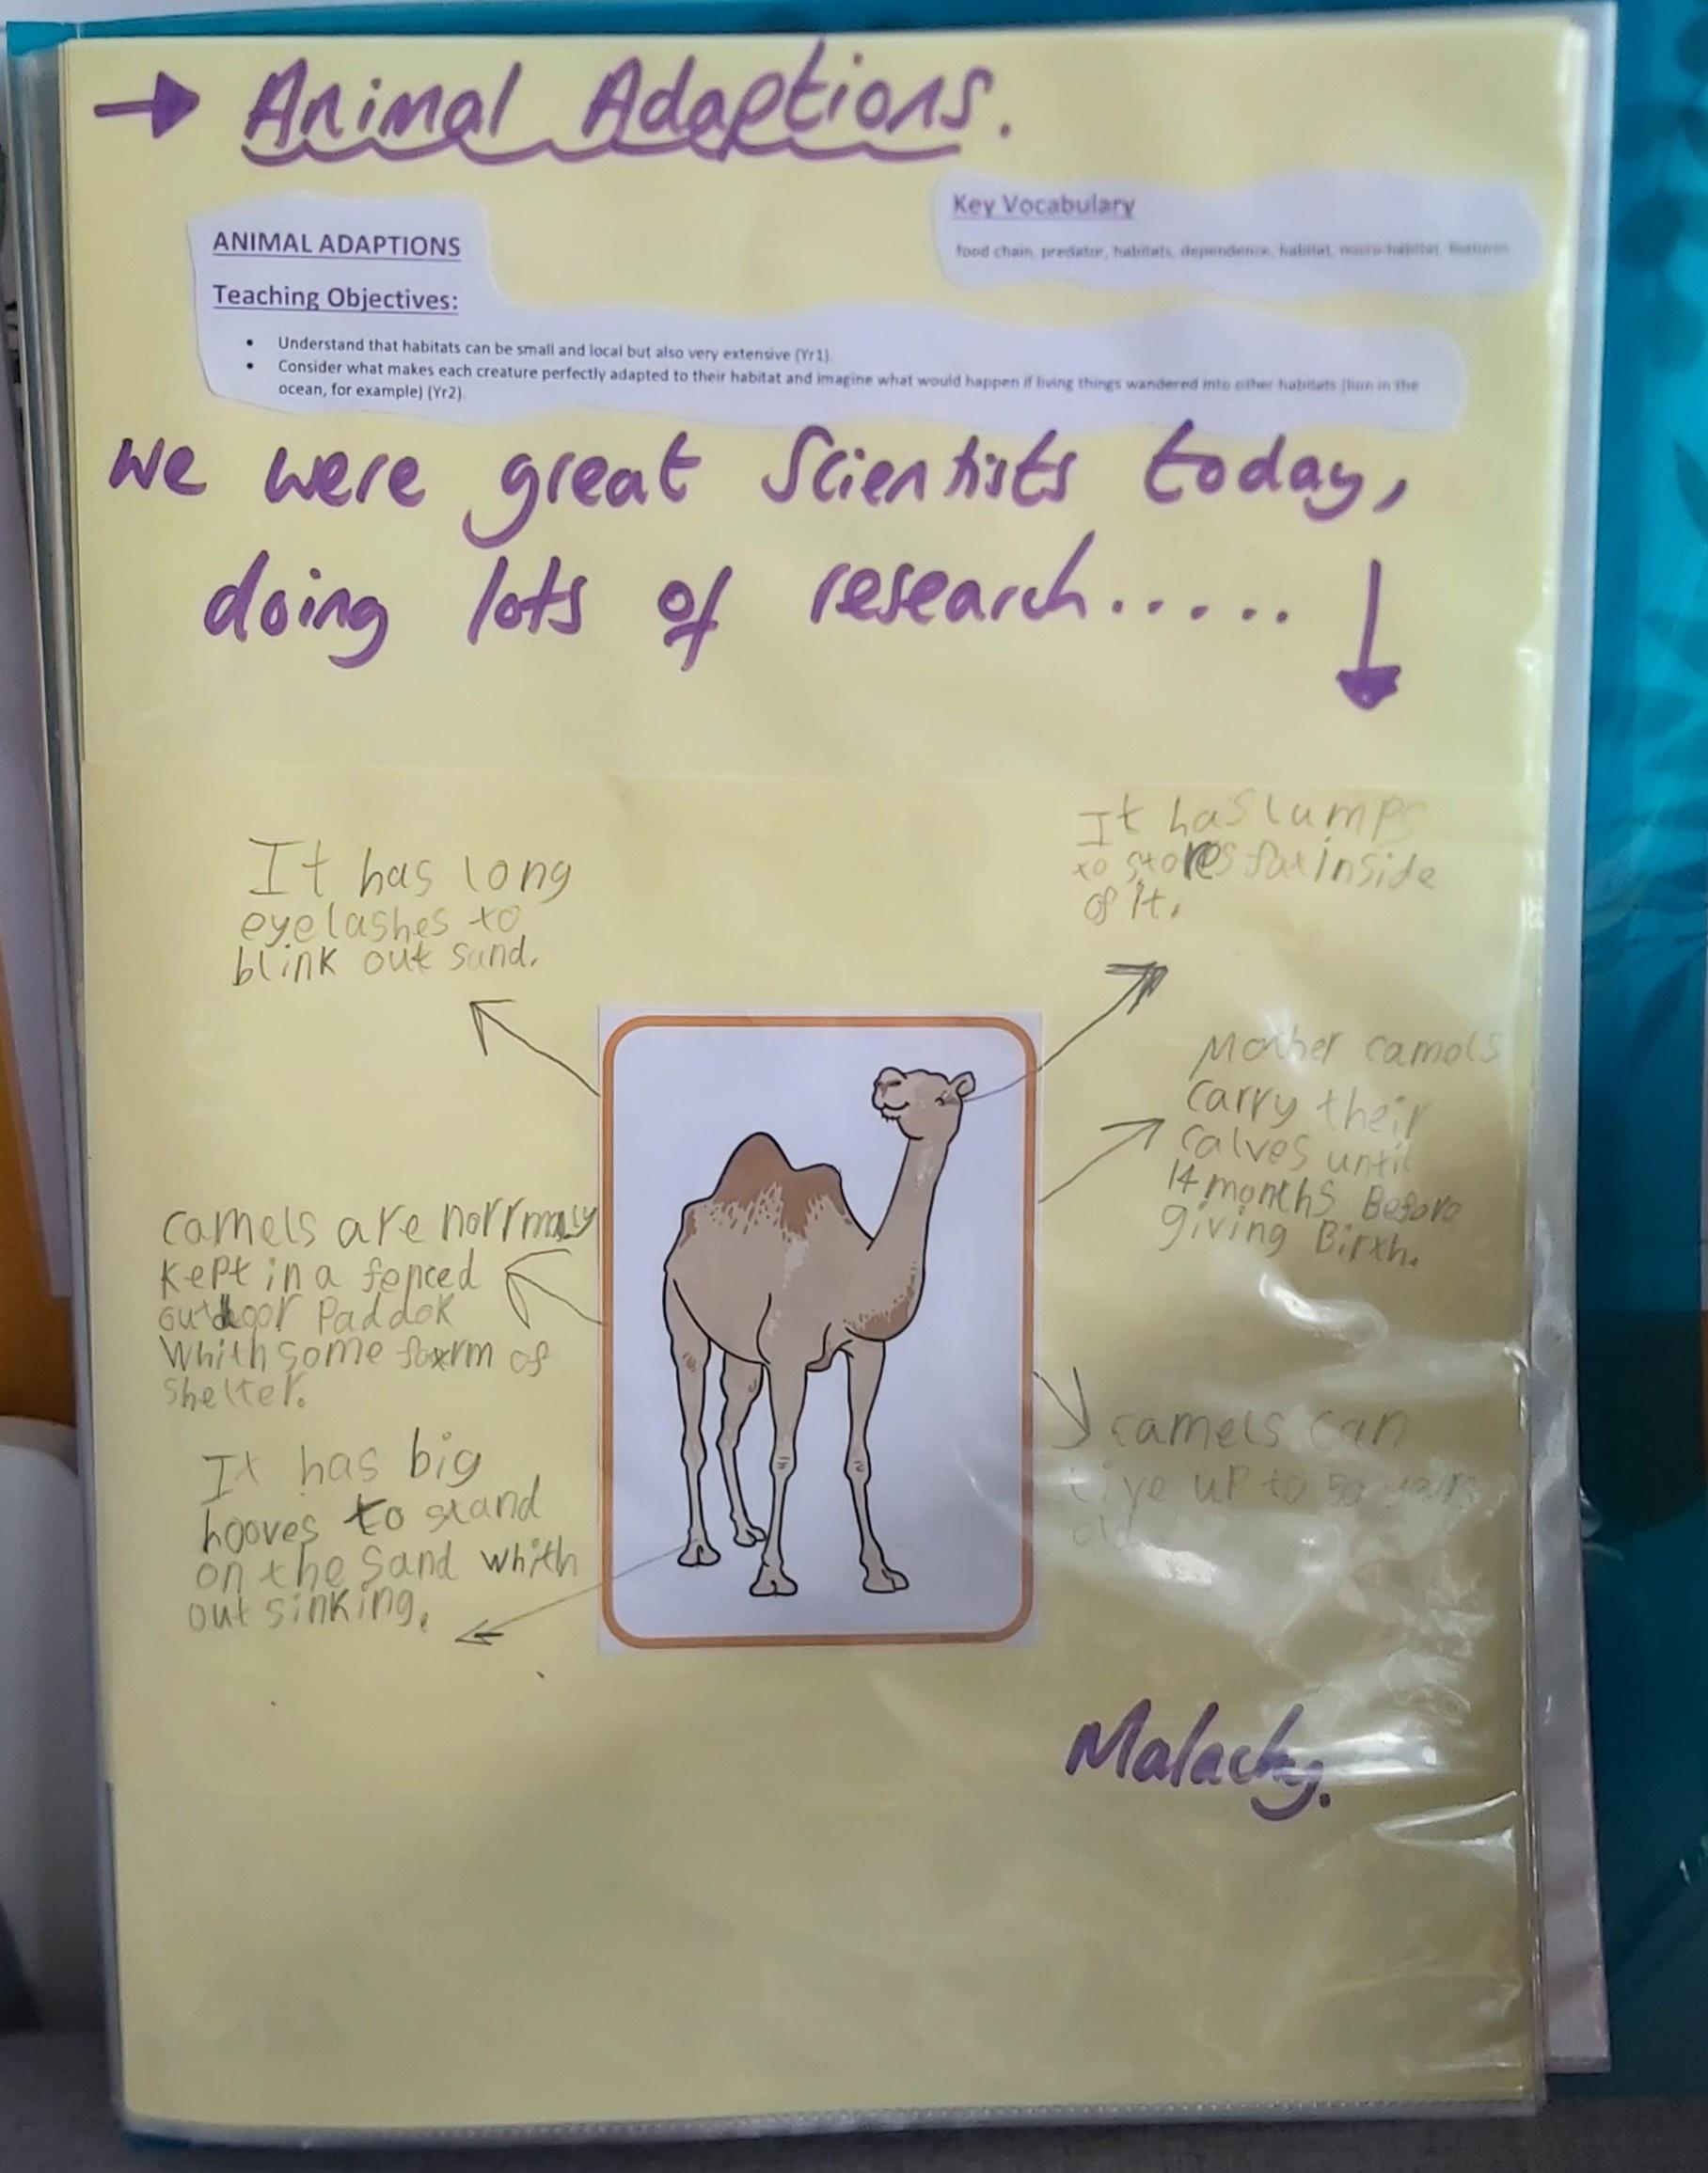 Animal Adaptions.
Key Vocabulary
food chain, predator, habitats, dependense, habitat, micro-habitat, features
ANIMAL ADAPTIONS
Teaching Objectives:
• Understand that habitats can be small and local but also very extensive (Yr1).
• Consider what makes each creature perfectly adapted to their habitat and imagine what would happen if living things wandered into other habitats (lion in the
ocean, for example) (Yr2).
we were great Scientists today,
doing lots of research.....
It has long
eyelashes to
blink out sand.
It has lumps
to stores fat inside
of it.
Mother camols
carry their
calves until
14 months Before
giving Birth.
camels are norrmaly
kept in a fenced
outdoor Paddok
whith some form of
shelter.
It has big
hooves to stand
on the sand whith
out sinking.
camels can
live up to 50 years
old.
Malachy.